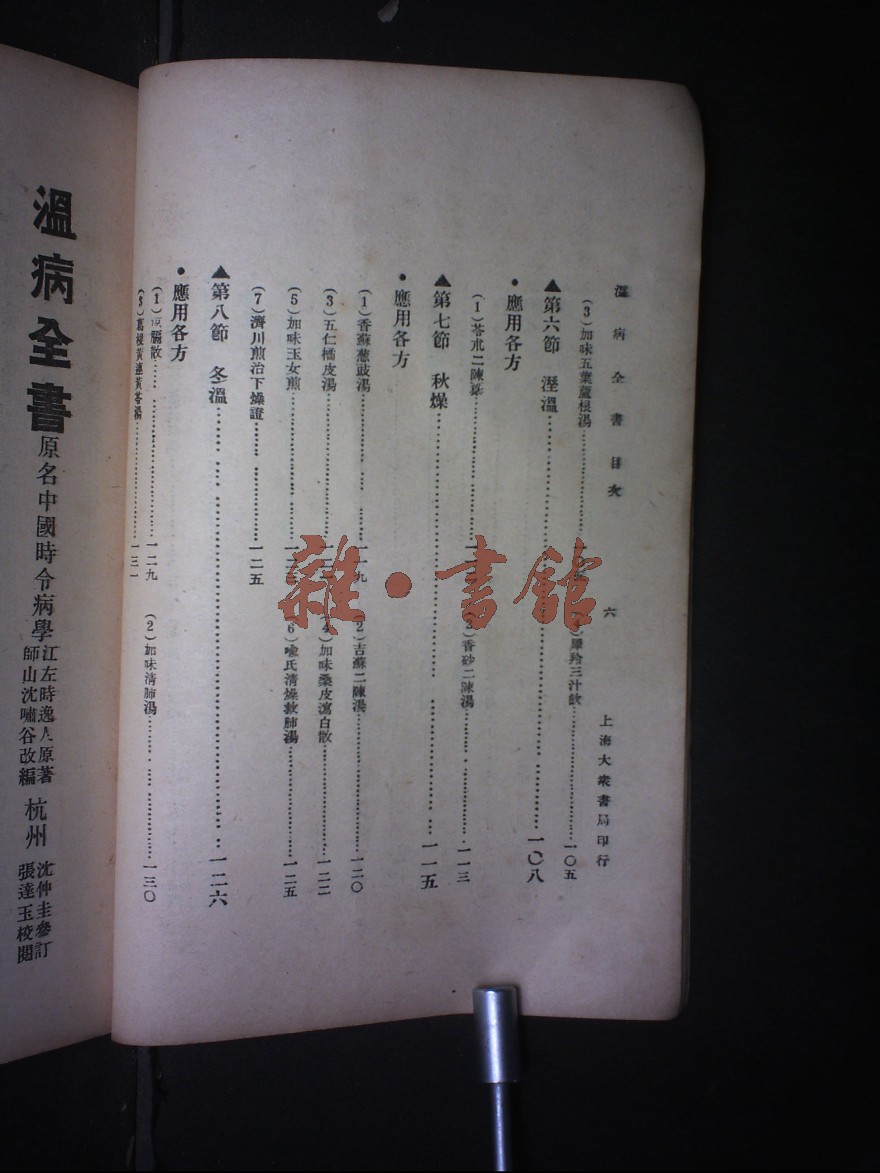 溫病全書目次 六 上海大衆書局印行
(3)加味五葉蘆根湯 三汁飲 一〇五
▲第六節 溼溫 一〇八
•應用各方
(1)苓朮二陳 (2)香砂二陳湯 一一三
▲第七節 秋燥 一一五
•應用各方
(1)香蘇葱豉湯 一一九 (2)吉蘇二陳湯 一二〇
(3)五仁橘皮湯 (4)加味桑皮瀉白散 一二二
(5)加味玉女煎 (6)喩氏清燥救肺湯 一二五
(7)濟川煎治下燥證 一二五
▲第八節 冬溫 一二六
•應用各方
(1) 散 一二九 (2)加味清肺湯 一三〇
(3)葛根黃連黃芩湯 一三一
溫病全書 原名中國時令病學 江左時逸人原著 師山沈嘯谷改編 杭州 沈仲圭參訂 張達玉校閱
雜·書館